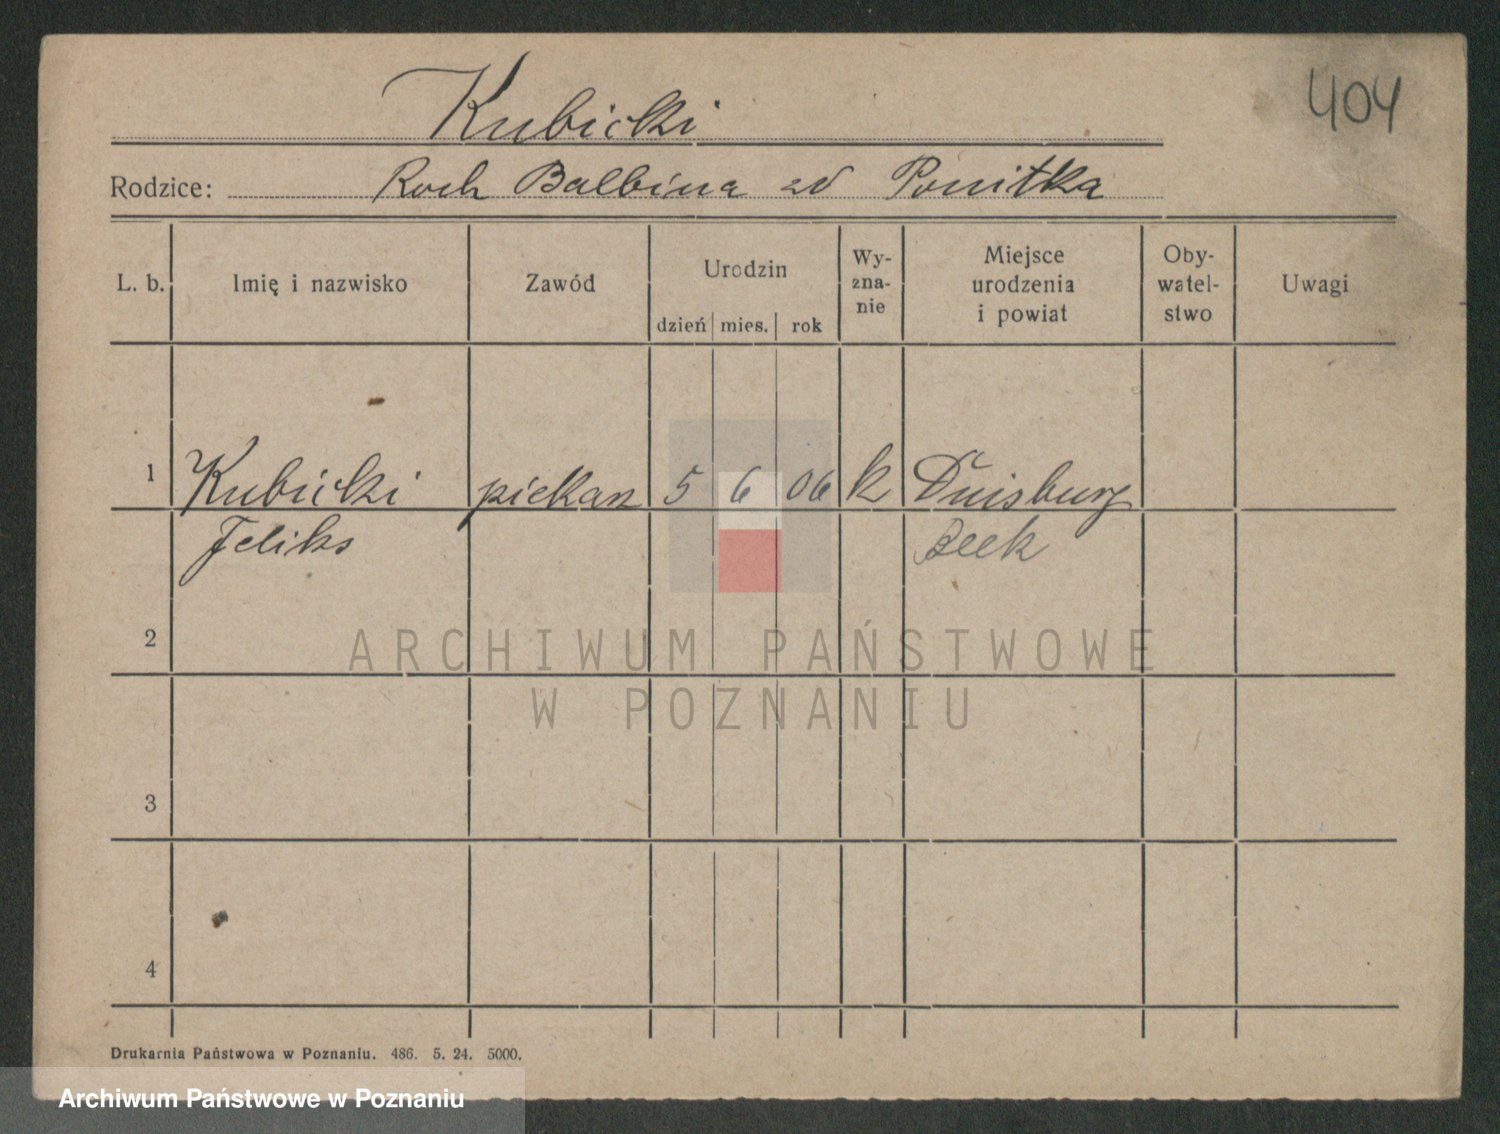 404
Kubicki
Rodzice: Roch Balbina zd Ponitka
L. b. Imię i nazwisko Zawód Urodzin dzień mies. rok Wy-znanie Miejsce urodzenia i powiat Oby-watel-stwo Uwagi
1 Kubicki piekarz 5 6 06 k Duisburg
Feliks Beek
2
ARCHIWUM PAŃSTWOWE
W POZNANIU
3
4
Drukarnia Państwowa w Poznaniu. 486. 5. 24. 5000.
Archiwum Państwowe w Poznaniu